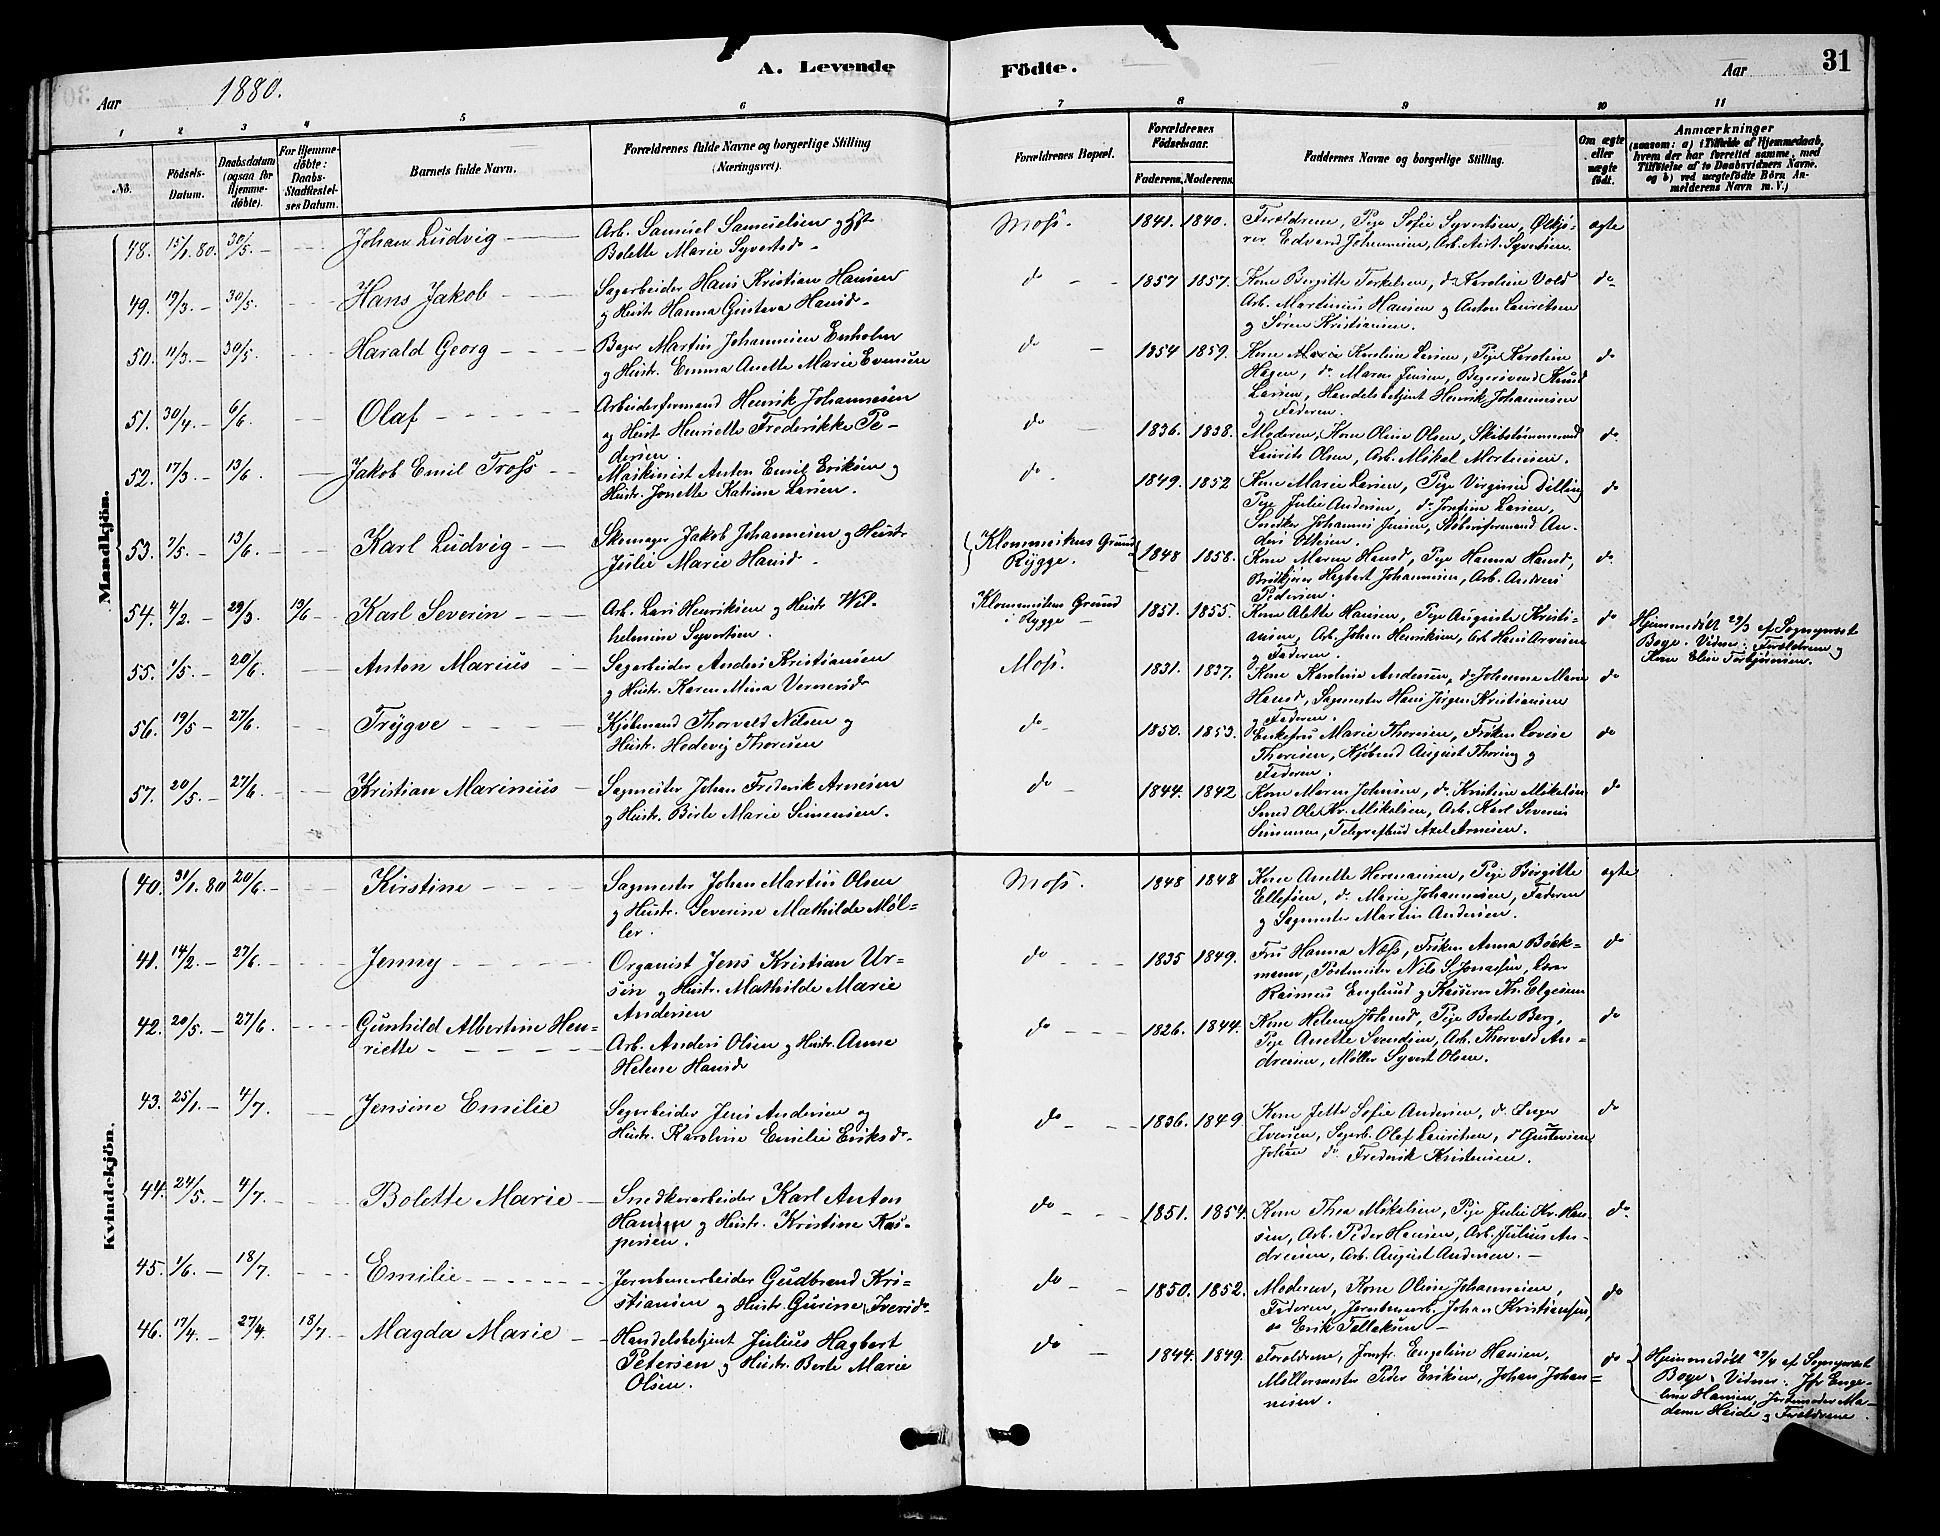 Aar 1880.
A. Levende
Födte.
Aar
31
1 2 3 4 5 6
7 8 9 10 11
No.
Födsels-
Datum.
Daabsdatum
(ogsaa for
Hjemme-
döbte).
For Hjemme-
döbte:
Daabs-
Stadfæstel-
ses Datum.
Barnets fulde Navn.
Forældrenes fulde Navne og borgerlige Stilling
(Næringsvei).
Forældrenes Bopæl.
Forældrenes
Födselsaar.
Faderens. Moderens.
Faddernes Navne og borgerlige Stilling.
Om ægte
eller
uægte
födt.
Anmærkninger
(saasom: a) i Tilfælde af Hjemmedaab,
hvem der har forrettet samme, med
Tilföielse af to Daabsvidners Navne.
og b) ved uægtefödte Börn An-
melderens Navn m. V.)
Mandkjön.
48. 15/1. 80. 30/5. Johan Ludvig
Arb. Samuel Samuelsen og Hst.
Bolette Marie Syvertsd.
Moss. 1841. 1840.
Forældrene, Pige Sofie Syvertsen, Ølkjø-
rer Edvard Johannesen, Arb. Syvertsen
ægte
49. 19/3. 30/5. Hans Jakob
Sagarbeider Hans Kristian Hansen
og Hustr. Hanna Gustava Hansd.
do 1857 1857.
Kone Birgitte Torkelsen, do Karoline Vold
Arb. Martinius Hansen og Anton Lauritsen
og Søren Kristiansen.
do
50. 11/3. 30/5 Harald Georg
Bager Martin Johannesen Enholm
og Hustr. Emma Anette Marie Evensen
do 1854 1859.
Kone Maria Karoline Larsen, Pige Karoline
Hagen, do Maren Jensen, Bagersvend Knud
Larsen, Handelsbetjent Henrik Johannesen
og Faderen.
do
51. 30/4. 6/6. Olaf
Arbeiderformand Henrik Johannesen
og Hust. Henriette Frederikke Pe-
dersen.
do 1836. 1838.
Moderen, Kone Oline Olsen, Skibstømmermand
Laurits Olsen, Arb. Mikal Mortensen.
do
52. 17/3. 13/6. Jakob Emil Tross
Maskinist Anton Emil Eriksen og
Hustr. Jonette Katrine Larsen.
do. 1849. 1852
Kone Marie Larsen, Pige Virginie Dilling
Pige Julie Andersen, do Josefine Larsen,
Snedker Johannes Jensen, Støberiformand An-
ders Ottesen.
do
53. 7/5. 13/6. Karl Ludvig
Skomager Jakob Johannesen og Hustr.
Julie Marie Hansd.
Klommestens Grund
Rygge.
1848 1858.
Kone Maren Hansd, Pige Hanna Hansd,
Brødkjører Hagbert Johannesen, Arb. Anders
Pedersen.
do.
54. 4/2. 29/3. 13/6 Karl Severin
Arb. Lars Henriksen og Hustr. Wil-
helmine Syvertsen.
Klommestens Grund
i Rygge
1851. 1855.
Kone Alette Hansen, Pige Auguste Kristi-
ansen, Arb. Johan Henriksen, Arb. Hans Arvesen
og Faderen.
do
Hjemmedøbt 29/3 af Sognepræst
Boye. Vidner: Forældrene og
Kone Elise Torbjørnsen.
55. 1/5. 20/6. Anton Marius
Sagarbeider Anders Kristiansen
og Hustr. Karen Mina Vernersd.
Moss. 1831. 1837.
Kone Karoline Andersen, do Johanne Marie
Hansd, Sagmester Hans Jørgen Kristiansen
og Faderen.
do
56. 19/5 27/6. Trygve
Kjøbmand Thorvald Nilsen og
Hustr. Hedevig Thoresen
do 1850. 1853.
Enkefru Marie Thoresen, Frøken Lovise
Thoresen, Kjøbmd August Thoring og
Faderen.
do
57. 20/5. 27/6. Kristian Marinius
Sagmester Johan Frederik Arnesen
og Hustr. Birte Marie Simensen.
do 1844. 1842
Kone Maren Johnsen, do. Kristine Mikalsen
Smed Ole Kr. Mikalsen, Arb. Karl Severin
Simensen, Telegrafbud Axel Arnesen.
do
Kvindekjön.
40. 31/1. 80 20/6. Kirstine
Sagmester Johan Martin Olsen
og Hustr. Severine Mathilde Møl-
ler.
Moss. 1848 1848
Kone Anette Hermansen, Pige Birgitte
Ellefsen, do Marie Johannesen, Faderen
og Sagmester Martin Andersen.
ægte
41. 14/2. 27/6. Jenny
Organist Jens Kristian Ur-
sin og Hustr. Mathilde Marie
Andersen
do 1835 1849.
Fru Hanna Næss, Frøken Anna Bøck-
mann, Postmester Nils S. Jonassen, Lærer
Rasmus Englund og Kasserer Th. Elgesem
do
42. 20/5. 27/6. Gunhild Albertine Hen-
riette
Arb. Anders Olsen og Hustr. Anne
Helene Hansd.
do 1826. 1844.
Kone Helene Johnsd, Pige Berte Berg,
Pige Anette Svendsen, Arb. Thorvald An-
dresen, Møller Syvert Olsen.
do
43. 25/1. 4/7. Jensine Emilie
Sagarbeider Jens Andersen og
Hustr. Karoline Emilie Eriksd.
do 1836. 1849
Kone Jette Sofie Andersen, do. Inger
Iversen, Sagarb. Olaf Lauritsen, do Gustavsen
Johan do. Frederik Kristensen.
do
44. 24/5. 4/7. Bolette Marie
Snedkerarbeider Karl Anton
Hansen og Hustr. Kristine Kas-
persen.
do 1851. 1854.
Kone Thea Mikalsen, Pige Julie Kr. Han-
sen, Arb. Peder Hansen, Arb. Julius An-
dresen, Arb. August Andersen.
do.
45. 1/6. 18/7. Emilie
Jernbanearbeider Gudbrand Kri-
stiansen og Hustr. Gurine Iversd.
do 1850. 1852.
Moderen, Kone Oline Johannesen,
Faderen, Jernbanearb. Johan Kristiansen,
do Erik Tollaksen
do
46. 17/4. 27/4. 18/7. Magda Marie
Handelsbetjent Julius Hagbert
Petersen og Hustr. Berte Marie
Olsen.
do 1844. 1849.
Forældrene, Jomfr. Engeline Hansen,
Møllermester Peder Eriksen, Johan Johan-
nesen.
do
Hjemmedøbt 27/4 af Sognepræst
Boye. Vidner: Jfr Enge-
line Hansen, Jordemoder Ma-
dame Heide og Forældrene.